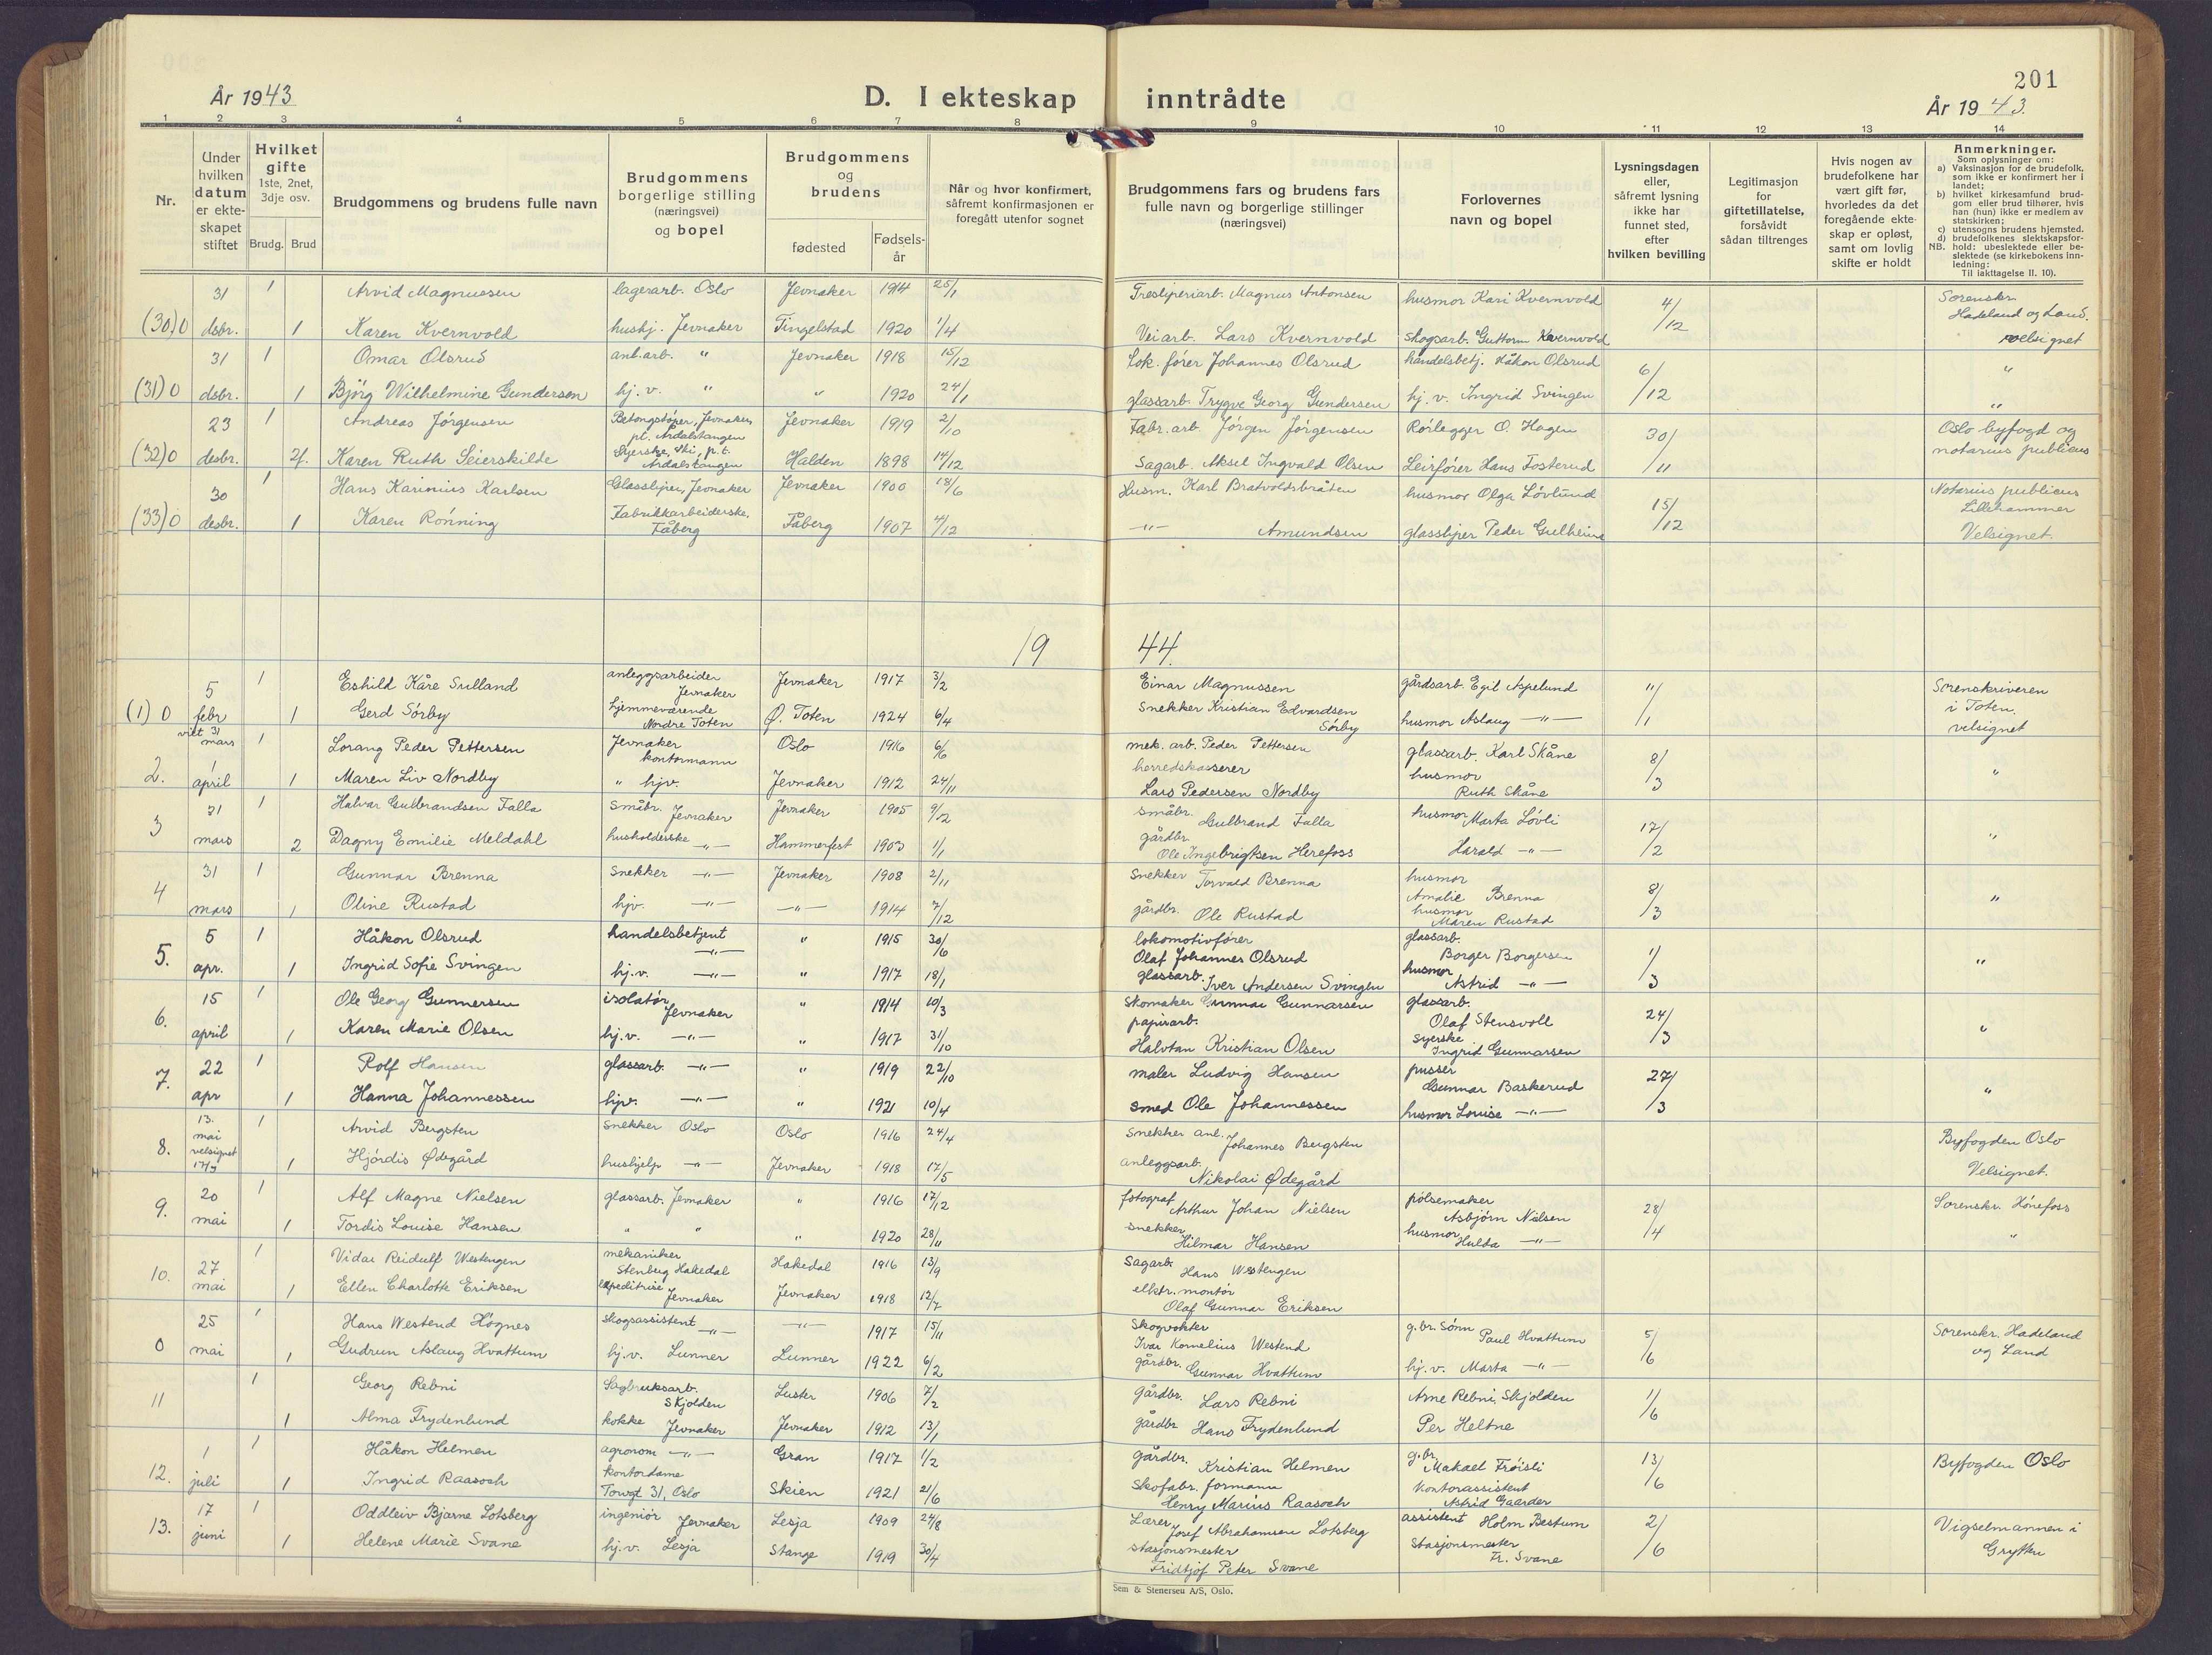 201
År 1943
D. I ekteskap inntrådte
År 1943.
1 2 3 4 5 6 7 8 9 10 11 12 13 14
Nr.
Under hvilken datum er ekteskapet stiftet
Hvilket gifte 1ste, 2net, 3dje osv.
Brudg. Brud
Brudgommens og brudens fulle navn
Brudgommens borgerlige stilling (næringsvei) og bopel
Brudgommens og brudens
fødested
Fødselsår
Når og hvor konfirmert, såfremt konfirmasjonen er foregått utenfor sognet
Brudgommens fars og brudens fars fulle navn og borgerlige stillinger (næringsvei)
Forlovernes navn og bopel
Lysningsdagen eller, såfremt lysning ikke har funnet sted, efter hvilken bevilling
Legitimasjon for giftetillatelse, forsåvidt sådan tiltrenges
Hvis nogen av brudefolkene har vært gift før, hvorledes da det foregående ekteskap er opløst, samt om lovlig skifte er holdt
Anmerkninger.
Som oplysninger om:
a) Vaksinasjon for de brudefolk, som ikke er konfirmert her i landet;
b) hvilket kirkesamfund brudgom eller brud tilhører, hvis han (hun) ikke er medlem av statskirken;
c) utensogns brudens hjemsted.
d) brudefolkenes slektskapsforhold: ubeslektede eller beslektede (se kirkebokens innledning:
NB. Til iakttagelse II. 10).
31 1 Arvid Magnussen lagerarb. Oslo Jevnaker 1914 25/1 Tresliperiarb. Magnus Antonsen husmor Kari Kvernvold 4/12 Sorenskr. Hadeland og Land.
(30) 0 dsbr. 1 Karen Kvernvold hushj. Jevnaker Tingelstad 1920 1/4 Veiarb. Lars Kvernvold Skogsarb. Guttorm Kvernvold velsignet
31 1 Omar Olsrud anl.arb. " Jevnaker 1918 15/12 lok. fører Johannes Olsrud handelsbetj. Håkon Olsrud 6/12 "
(31) 0 dsbr. 1 Bjørg Wilhelmine Gundersen hj. v. " " 1920 24/1 glassarb. Trygve Georg Gundersen hj. v. Ingrid Svingen "
23 1 Andreas Jørgensen Betongstøper, Jevnaker, pt. Årdalstangen Jevnaker 1919 2/10 Fabr. arb. Jørgen Jørgensen Rørlegger O. Hagen 30/11 Oslo byfogd og notarius publicus
(32) 0 desbr. 2f. Karen Ruth Seierskilde Syerske, Ski, p.t. Årdalstangen Halden 1898 14/12 Sagarb. Aksel Ingvald Olsen Leirfører Hans Fosterud
30 1 Hans Karinius Karlsen Glassliper, Jevnaker Jevnaker 1900 18/6 Husm. Karl Bratvoldsbråten husmor Olga Løvlund 15/12 Notarius publicus Lillehammer
(33) 0 desbr. 1 Karen Rønning Fabrikkarbeiderske, Fåberg Fåberg 1907 4/12 —"— Amundsen glassliper Peder Gulheim Velsignet.
19 44.
5 1 Eskild Kåre Sulland anleggsarbeider Jevnaker Jevnaker 1917 3/2 Einar Magnussen gårdsarb. Egil Aspelund 11/1 Sorenskriveren i Toten.
(1) 0 febr 1 Gerd Sørby hjemmeværende Nordre Toten Ø. Toten 1924 6/4 Snekker Kristian Edvardsen Sørby husmor Aslaug —"— velsignet
31 mars 1 Lorang Peder Pettersen Jevnaker kontormann Oslo 1916 6/6 mek. arb. Peder Pettersen glassarb. Karl Skåne 8/3
2. 1 april 1 Maren Liv Nordby " hjv. Jevnaker 1912 24/11 herredskasserer Lars Pedersen Nordby husmor Ruth Skåne "
31 1 Halvar Gulbrandsen Falla Småbr. Jevnaker Jevnaker 1905 9/12 småbr. Gulbrand Falla husmor Marta Løvli 17/2
3 mars 2 Dagny Emilie Meldahl husholderske —"— Hammerfest 1903 1/1 gårdbr. Ole Ingebrigtsen Herefoss Harald —"— "
31 1 Gunnar Brenna Snekker —"— Jevnaker 1908 2/11 Snekker Torvald Brenna husmor Amalie Brenna 8/3
4 mars 1 Oline Rustad hjv. —"— —"— 1914 7/12 gårdbr. Ole Rustad husmor Maren Rustad "
5 1 Håkon Olsrud handelsbetjent —"— " 1915 30/6 lokomotivfører Olaf Johannes Olsrud glassarb. Borger Borgersen 1/3
5. apr. 1 Ingrid Sofie Svingen hj.v. —"— " 1917 18/1 glassarb. Iver Andersen Svingen husmor Astrid —"— "
15 1 Ole Georg Gunnersen isolatør Jevnaker " 1914 10/3 Skomaker Gunnar Gunnarsen glassarb. Olaf Stensvoll 24/3
6. april 1 Karen Marie Olsen hj.v. —"— " 1917 31/10 papirarb. Halvtan Kristian Olsen syerske Ingrid Gunnarsen "
22 1 Rolf Hansen glassarb. —"— " 1919 22/10 maler Ludvig Hansen pusser Gunnar Baskerud 27/3
7. apr 1 Hanna Johannessen hjv. —"— " 1921 10/4 smed Ole Johannessen husmor Louise —"— "
13. mai 1 Arvid Bergsten snekker Oslo Oslo 1916 24/4 Snekker anl. Johannes Bergsten Byfogden Oslo
8. velsignet 1 Hjørdis Ødegård hushjelp —"— Jevnaker 1918 17/5 anleggsarb. Nikolai Ødegård Velsignet.
20 1 Alf Magne Nielsen glassarb. Jevnaker " 1916 17/12 fotograf Arthur Johan Nielsen pølsemaker Asbjørn Nilsen 28/4 Sorenskr. Hønefoss
9. mai 1 Tordis Louise Hansen " " " 1920 28/11 snekker Hilmar Hansen husmor Hulda —"— "
27 1 Vidar Reidulf Westengen mekaniker Stenberg Hakedal Hakedal 1916 13/9 Sagarb. Hans Westengen
10. mai 1 Ellen Charlotte Eriksen expeditrise Jevnaker Jevnaker 1918 12/7 elktr. montør Olaf Gunnar Eriksen
25 1 Hans Westend Høgnes Skogsassistent —"— —"— 1917 15/11 Skogvokter Ivar Kornelius Westend g.br. sønn Paul Hvattum 5/6 Sorenskr. Hadeland og Land
0 mai 1 Gudrun Aslaug Hvattum hj.v. Lunner Lunner 1922 6/2 gårdbr. Gunnar Hvattum hj. v. Marta —"—
1 Georg Rebni Sagbruksarb. Skjolden Luster 1906 7/2 Gårdbr. Lars Rebni Arne Rebni, Skjolden 1/6
11 1 Alma Frydenlund kokke Jevnaker Jevnaker 1912 13/1 gårdbr Hans Frydenlund Per Heltne
1 1 Håkon Helmen agronom —"— Gran 1917 1/2 Gårdbr. Kristian Helmen g.br. Makael Frøisli 13/6 Byfogden Oslo
12. juli 1 Ingrid Raasoch kontordame 31, Oslo Skien 1921 21/6 Skofabr. formann Henry Marius Raasoch Kontorassistent Astrid Gaarder
17 1 Oddleiv Bjarne Lotsberg ingeniør Jevnaker Lesja 1909 24/8 Lærer Josef Abrahamsen Lotsberg assistent Holm Bestum 2/6 Vigselmannen i Grytten
13. juni 1 Helene Marie Svane hj.v. Lesja Stange 1919 30/4 stasjonsmester Fridtjof Peter Svane Stasjonsmester Fr. Svane
Sem & Stenersen A/S, Oslo.